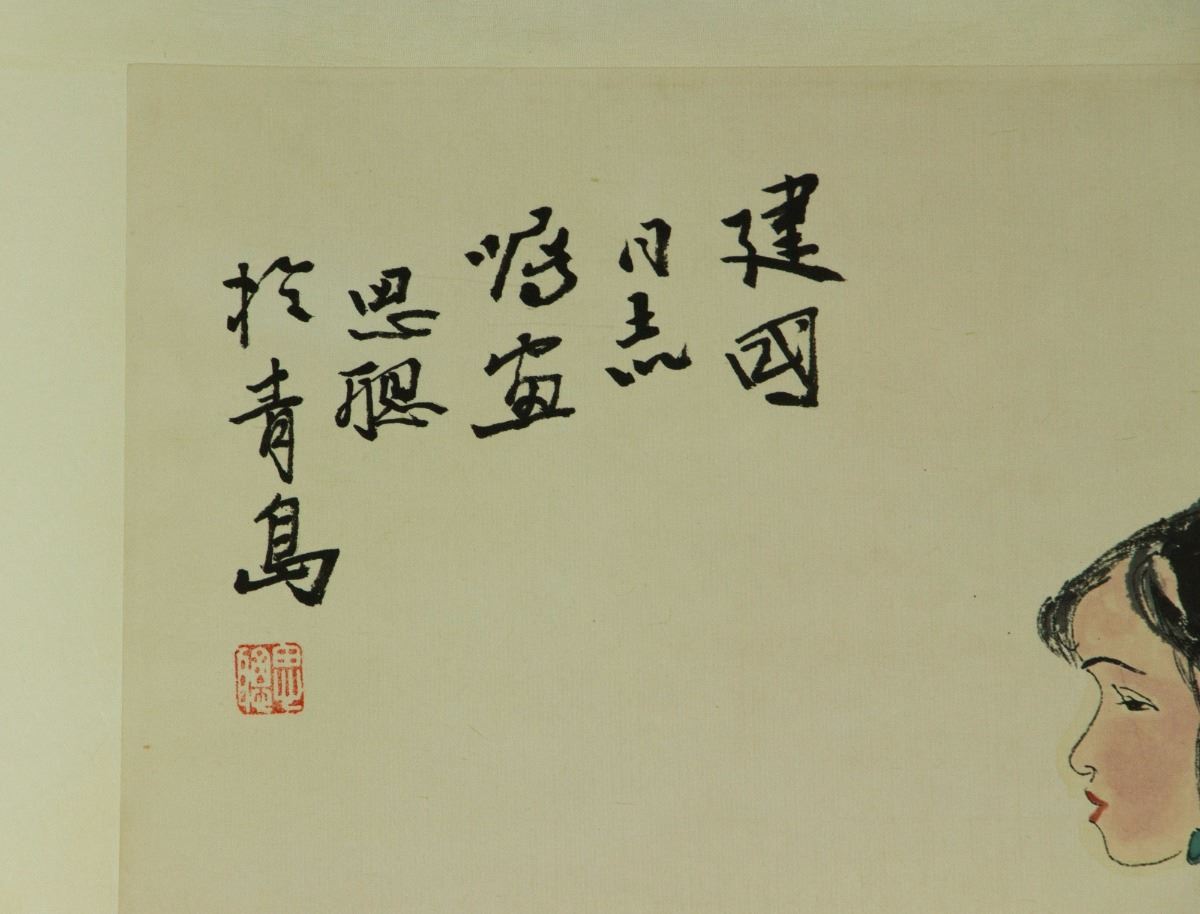 建國
同志
嘱畫
思聰
於青島
思聰